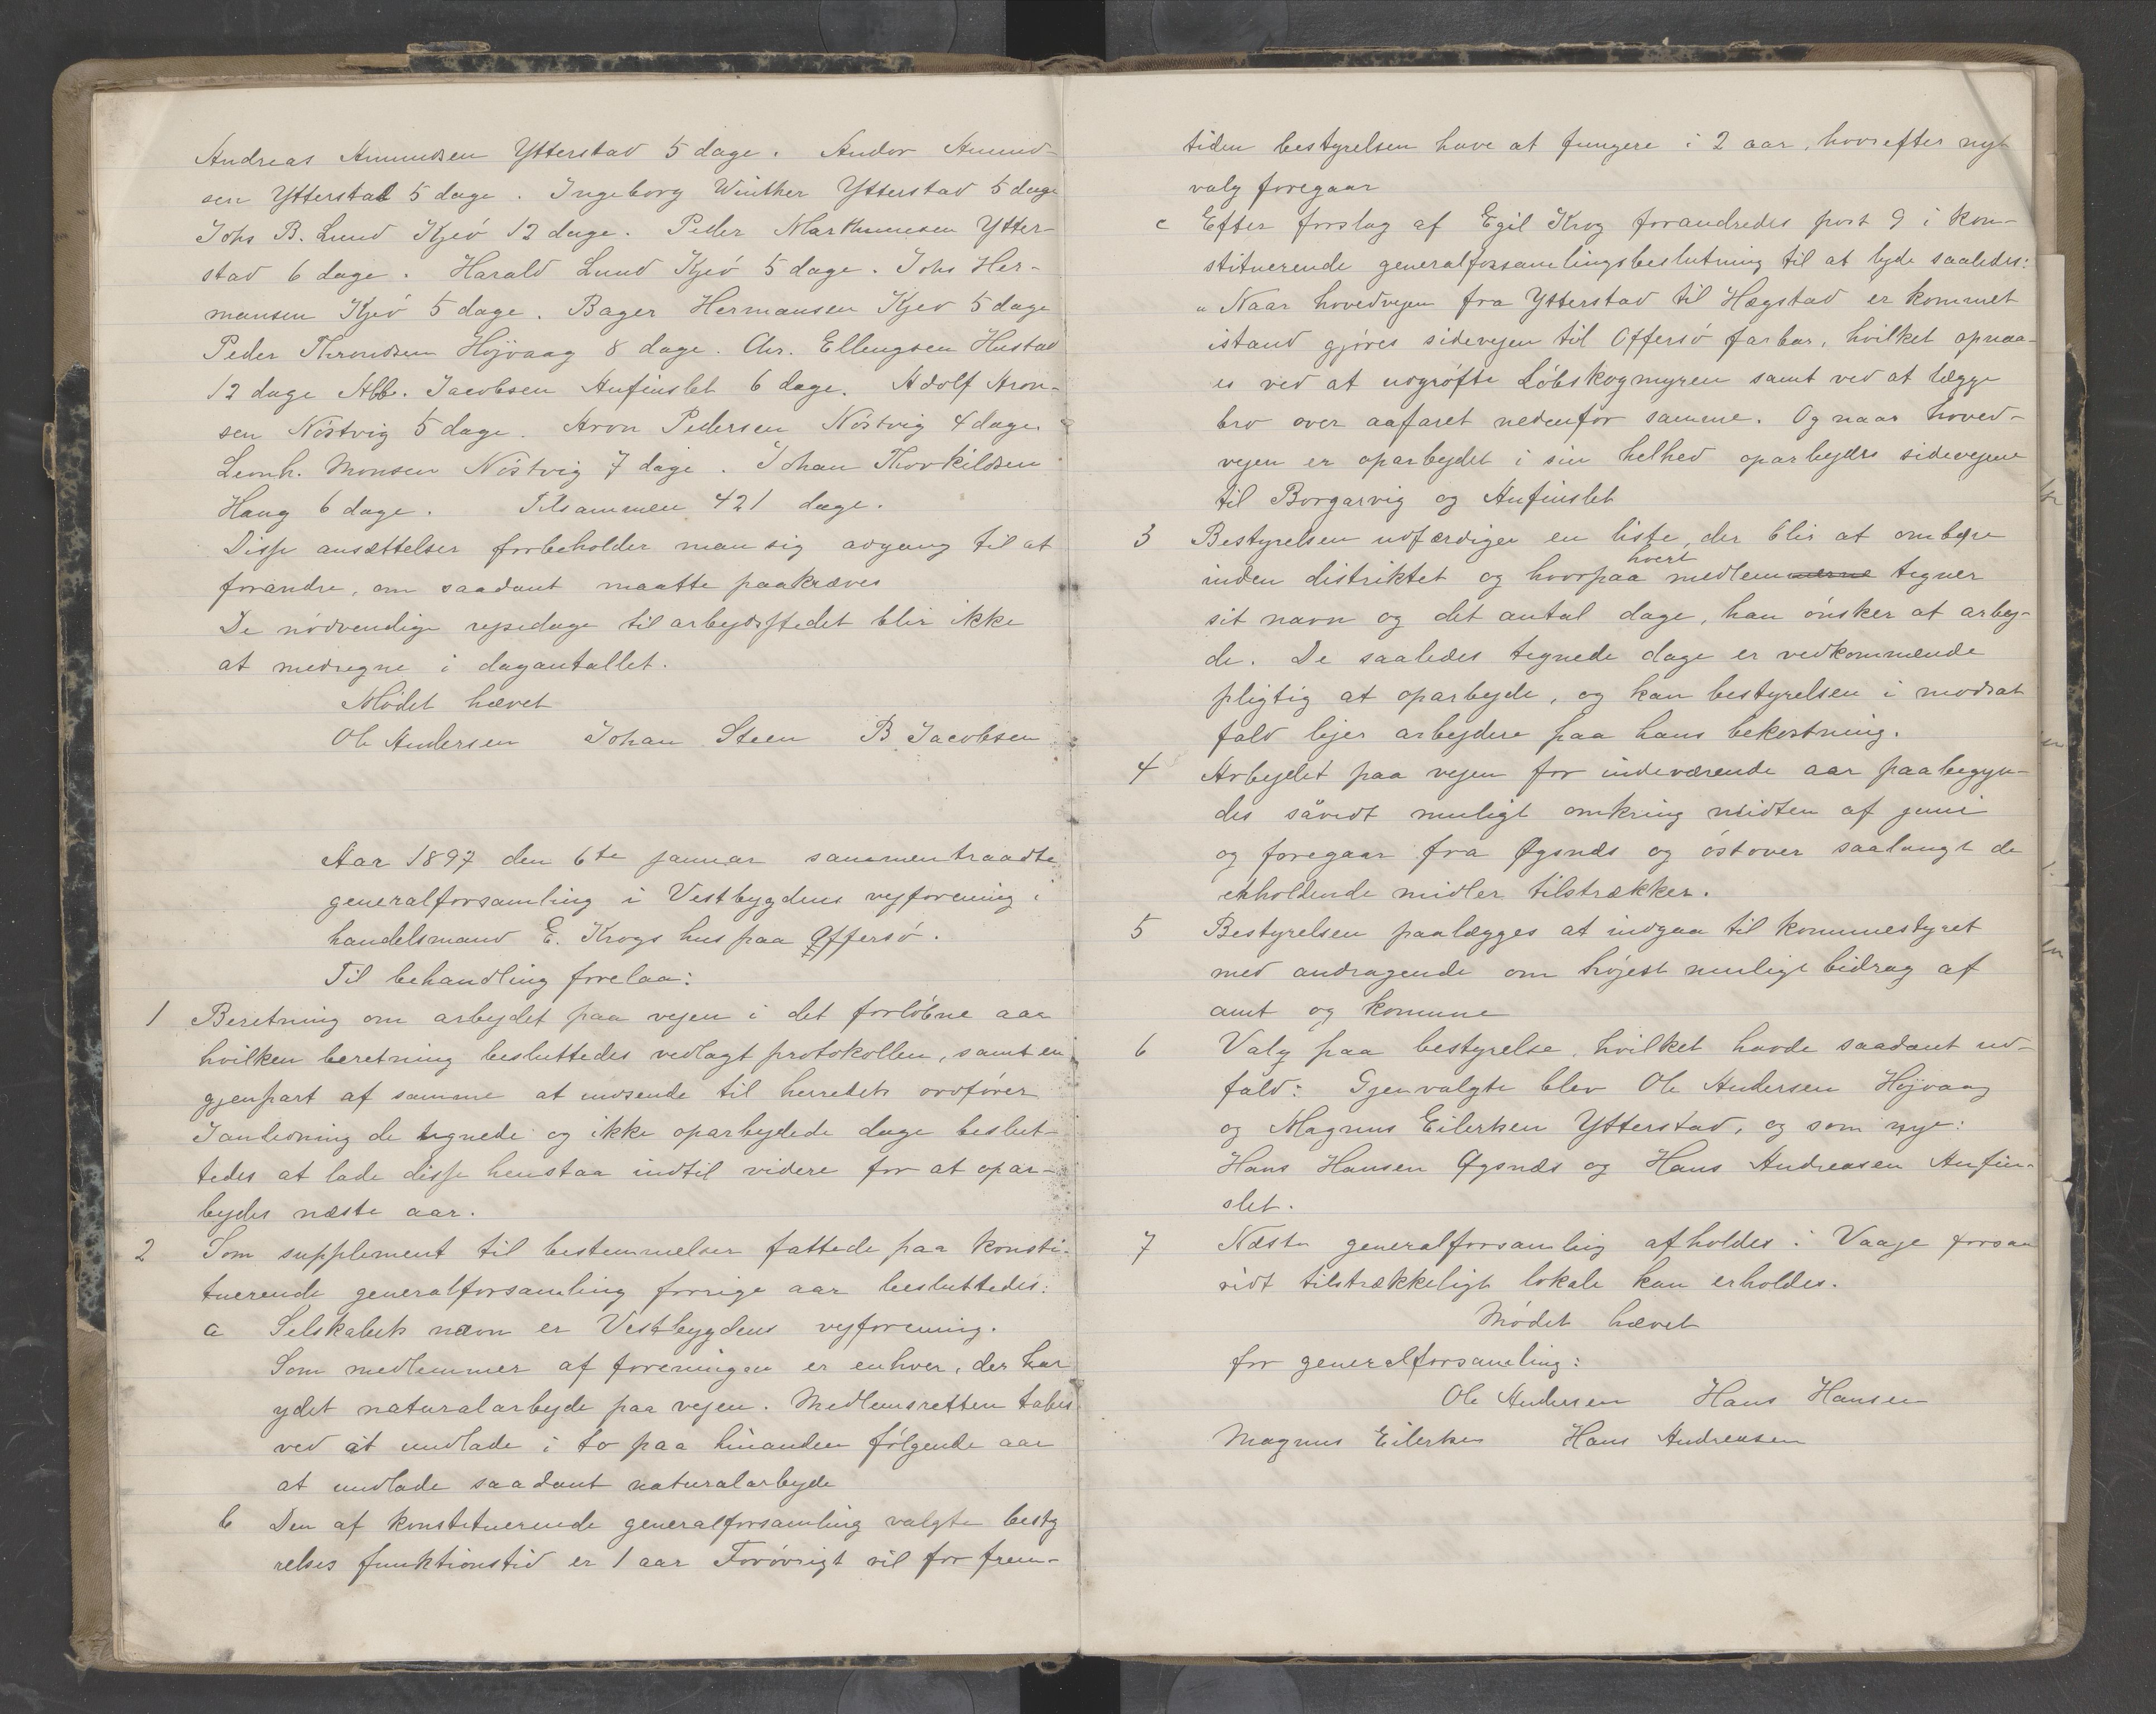 Andreas Amundsen Ytterstad 5 dage. Andor Amund-
sen Ytterstad 5 dage. Ingeborg Winther Ytterstad 5 dage
Johs B. Lund Kjeö 12 dage. Peder Marthinusen Ytter-
stad 6 dage. Harald Lund Kjeö 5 dage. Johs Her-
mansen Kjeö 5 dage. Bager Hermansen Kjeö 5 dage
Peder Throndsen Höjvaag 8 dage. Chr. Ellengsen Hustad
12 dage Alb. Jacobsen Anfinslet 6 dage. Adolf Aron-
sen Nöstvig 5 dage. Aron Pedersen Nöstvig 4 dage.
Leonh. Monsen Nöstvig 7 dage. Johan Thorkildsen
Haug 6 dage. Tilsammen 421 dage.
Disse ansættelser forbeholder man sig adgang til at
forandre, om saadant maatte paakræves
De nödvendige rejsedage til arbejdsstedet blir ikke
at medregne i dagantallet.
Mödet hævet
Ole Andersen Johan Steen B Jacobsen
Aar 1897 den 6te januar sammentraadte
generalforsamling i Vestbygdens vejforening i
handelsmand E. Krogs hus paa Offersö.
Til behandling forelaa:
1 Beretning om arbejdet paa vejen i det forlöbne aar
hvilken beretning besluttedes vedlagt protokollen, samt en
gjenpart af samme at indsende til herredets ordförer
I anledning de tegnede og ikke oparbejdede dage beslut-
tedes at lade disse henstaa indtil videre for at opar-
bejdes næste aar.
2 Som supplement til bestemmelser fattede paa konsti-
tuerende generalforsamling forrige aar besluttedes:
a Selskabets navn er Vestbygdens vejforening.
Som medlemmer af foreningen er enhver, der har
ydet naturalarbejde paa vejen. Medlemsretten tabes
ved at undlade i to paa hinanden fölgende aar
at undlade saadant naturalarbejde
b Den af konstituerende generalforsamling valgte besty
relses funktionstid er 1 aar Forövrigt vil for frem-
tiden bestyrelsen have at fungere i 2 aar, hvorefter nyt
valg foregaar
c Efter forslag af Egil Krog forandredes post 9 i kon-
stituerende generalforsamlingsbeslutning til at lyde saaledes:
"Naar hovedvejen fra Ytterstad til Hægstad er kommet
istand gjöres sidevejen til Offersö farbar, hvilket opnaa-
es ved at udgröfte Löbskogmyren samt ved at lægge
bro over aafaret nedenfor samme. Og naar hoved-
vejen er oparbejdet i sin helhed oparbejdes sidevejene
til Borgarvig og Anfinslet
3 Bestyrelsen udfærdiger en liste, der blir at ombære
inden distriktet og hvorpaa hvert medlemmerne tegner
sit navn og det antal dage, han önsker at arbej-
de. De saaledes tegnede dage er vedkommende
pligtig at oparbejde, og kan bestyrelsen i modsat
fald lejer arbejdere paa hans bekostning.
4 Arbejdet paa vejen for indeværende aar paabegyn-
des såvidt muligt omkring midten af juni
og foregaar fra Øgsnæs og östover saalangt de
erholdende midler tilstrækker.
5 Bestyrelsen paalægges at indgaa til kommunestyret
med andragende om höjest mulige bidrag af
amt og komune
6 Valg paa bestyrelse, hvilket havde saadant ud-
fald: Gjenvalgte blev Ole Andersen Höjvaag
og Magnus Eilertsen Ytterstad, og som nye:
Hans Hansen Øgsnæs og Hans Andreasen Anfin-
slet.
7 Næste generalforsamling afholdes i Vaaje forsaa
vidt tilstrækkeligt lokale kan erholdes.
Mödet hævet
for generalforsamling:
Ole Andersen Hans Hansen
Magnus Eilertsen Hans Andreasen